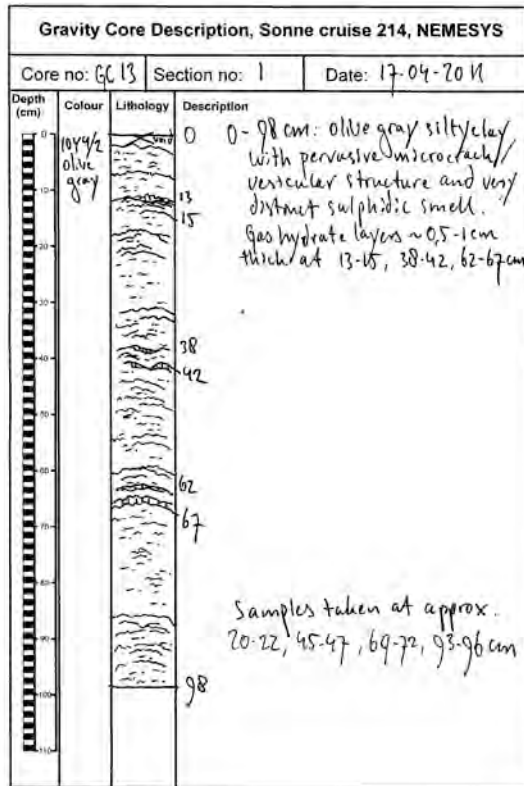 Gravity Core Description, Sonne cruise 214, NEMESYS
Core no: GC 13 Section no: 1 Date: 17-04-2011
Depth (cm) Colour Lithology Description
0
10
20
30
40
50
60
70
80
90
100
110
10Y4/2
olive
gray
void
0
13
15
38
42
62
67
98
0-98 cm: olive gray silty clay
with pervasive microcrack/
vesicular structure and very
distinct sulphidic smell.
Gas hydrate layers ~0,5-1cm
thick at 13-15, 38-42, 62-67cm
Samples taken at approx.
20-22, 45-47, 69-72, 93-96 cm